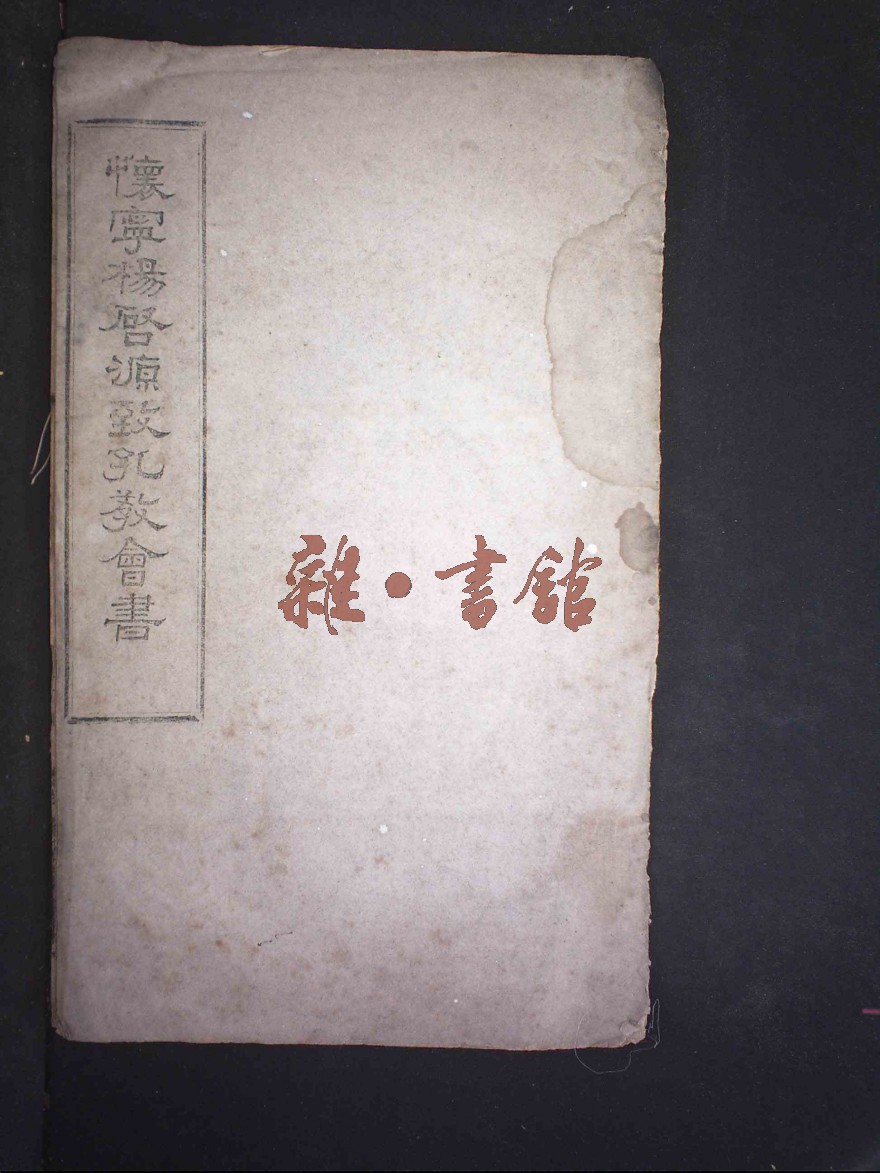 懷寧楊啓源致孔教會書
雜·書館